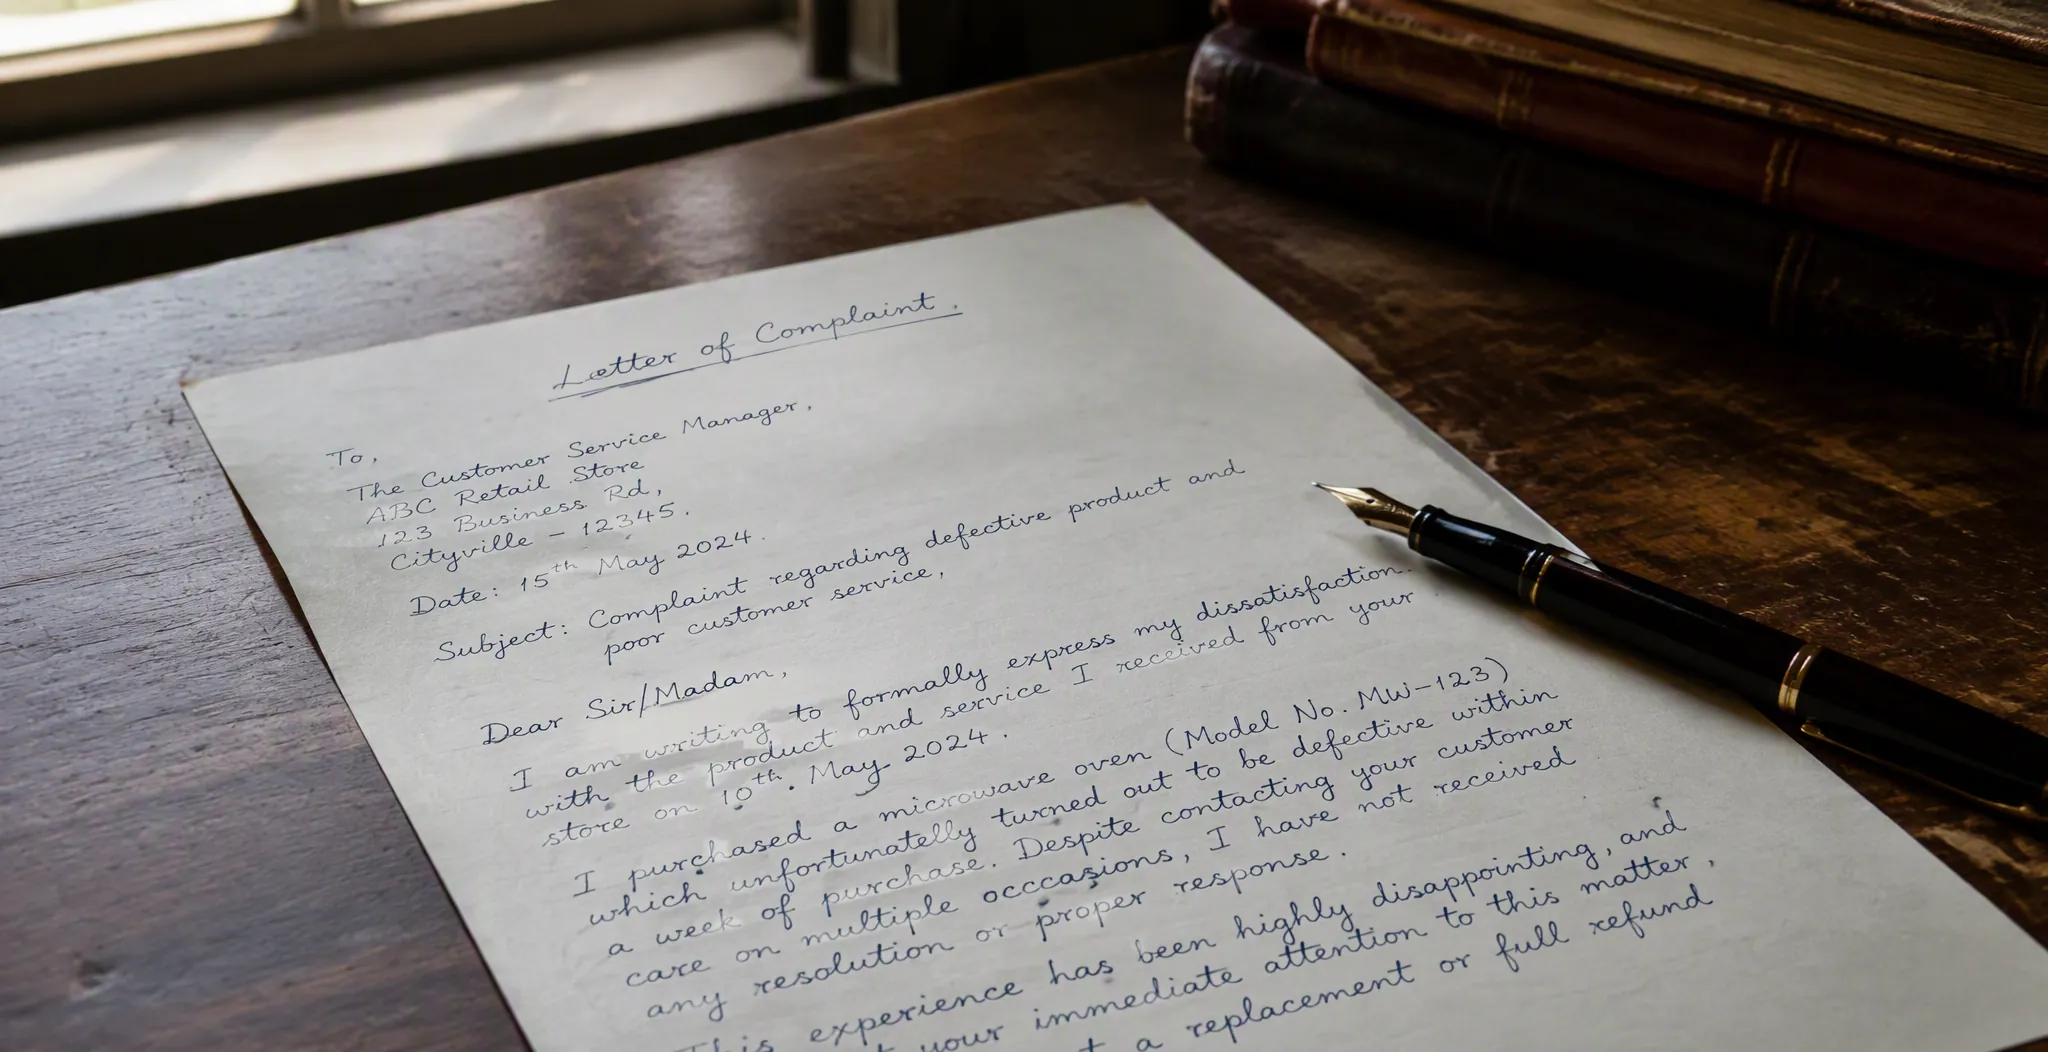 Letter of Complaint.
To,
The Customer Service Manager,
ABC Retail Store
123 Business Rd,
Cityville – 12345.
Date: 15th May 2024.
Subject: Complaint regarding defective product and
poor customer service,
Dear Sir/Madam,
I am writing to formally express my dissatisfaction.
with the product and service I received from your
store on 10th. May 2024.
I purchased a microwave oven (Model No. MW-123)
which unfortunatelly turned out to be defective within
a week of purchase. Despite contacting your customer
care on multiple occcasions, I have not received
any resolution or proper response.
This experience has been highly disappointing, and
your immediate attention to this matter,
a replacement or full refund